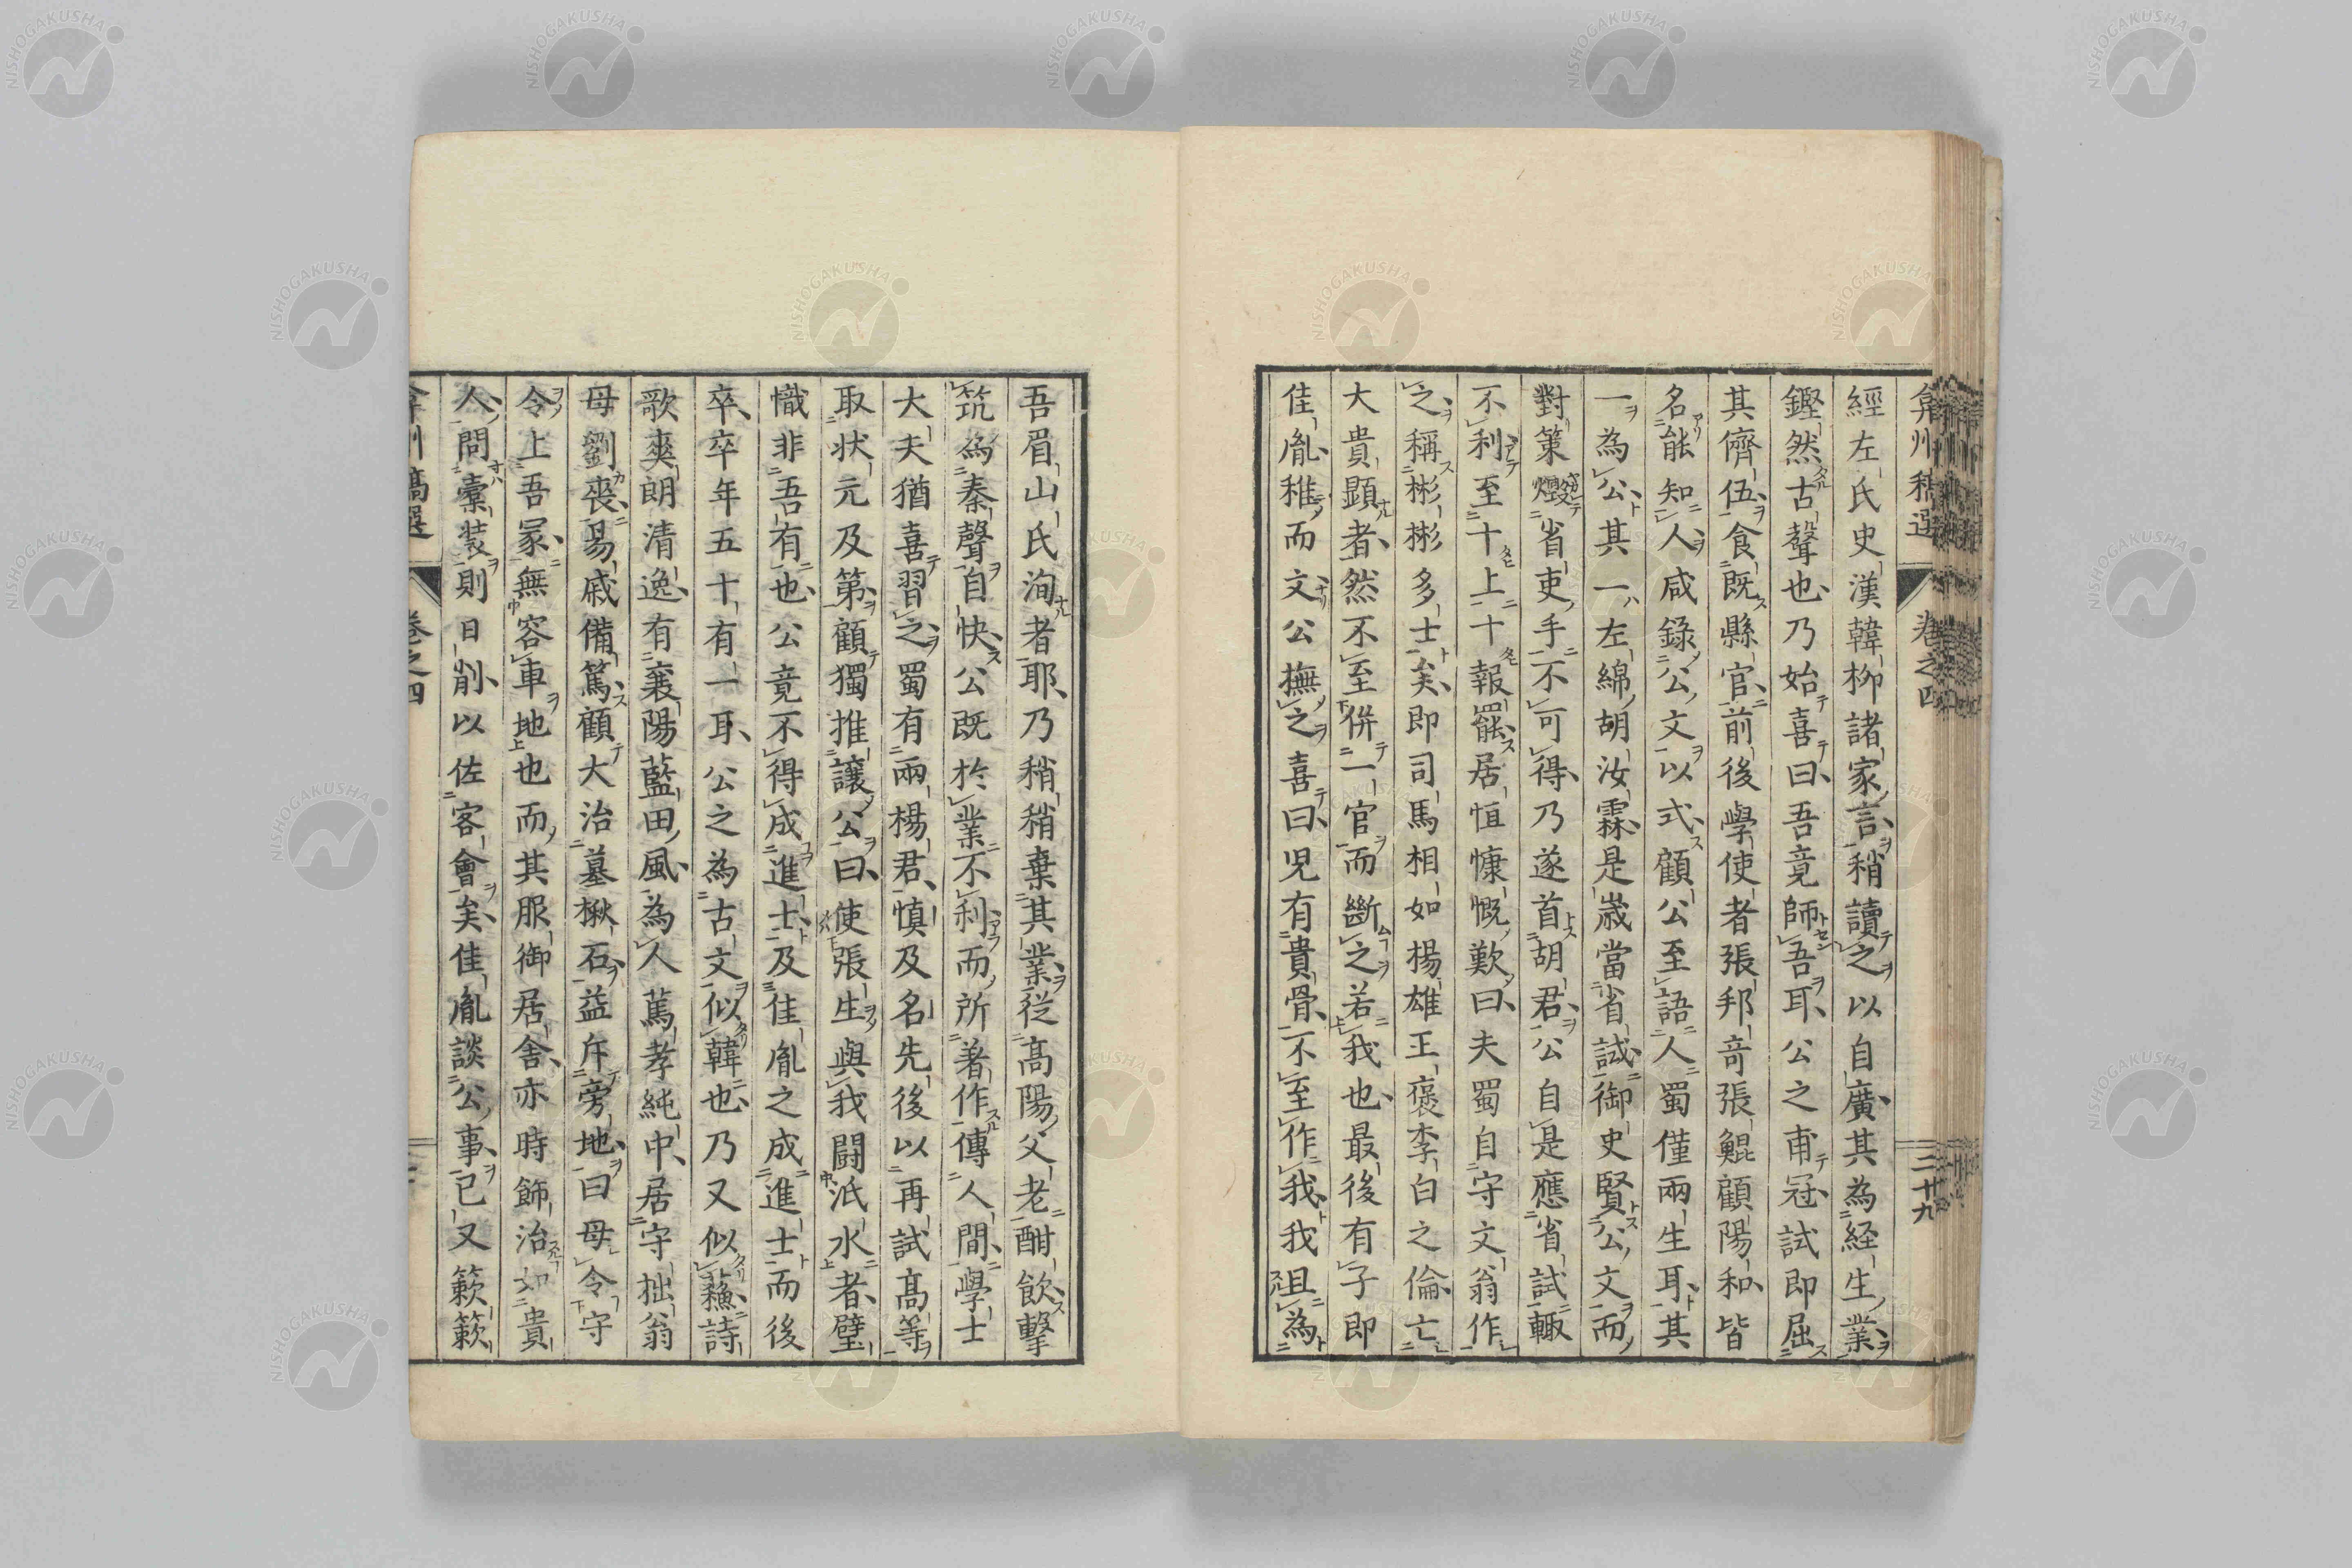 弇州稿選 卷之四 三十九
經左氏史漢韓柳諸家言稍讀之以自廣其為経生業
鏗然古聲也乃始喜曰吾竟師吾耳公之甫冠試即屈
其儕伍食既縣官前後學使者張邦竒張鯤顧陽和皆
名能知人咸錄公文以式顧公至語人蜀僅兩生耳其
一為公其一左綿胡汝霖是嵗當省試御史賢公文而
對策煅省吏手不可得乃遂首胡君公自是應省試輙
不利至十上十報罷居恒慷慨歎曰夫蜀自守文翁作
之稱彬彬多士矣即司馬相如楊雄王褒李白之倫亡
大貴顕者然不至併一官而斷之若我也最後有子即
佳胤稚而文公撫之喜曰児有貴骨不至作我我祖為
吾眉山氏洵者耶乃稍稍棄其業従髙陽父老酣飲擊
筑為秦聲自快公既於業不利而所著作傳人間學士
大夫猶喜習之蜀有兩楊君慎及名先後以再試髙等
取状元及第顧獨推讓公曰使張生與我闘汦水者壁
幟非吾有也公竟不得成進士及佳胤之成進士而後
卒卒年五十有一耳公之為古文似韓也乃又似蘓詩
歌爽朗清逸有襄陽藍田風為人篤孝純中居守拙翁
母劉喪易戚備篤顧大治墓楸石益斥旁地曰母令守
令上吾冢無容車地也而其服御居舎亦時飾治如貴
人問槖装則日削以佐客會矣佳胤談公事已又簌簌
弇州稿選 卷之四